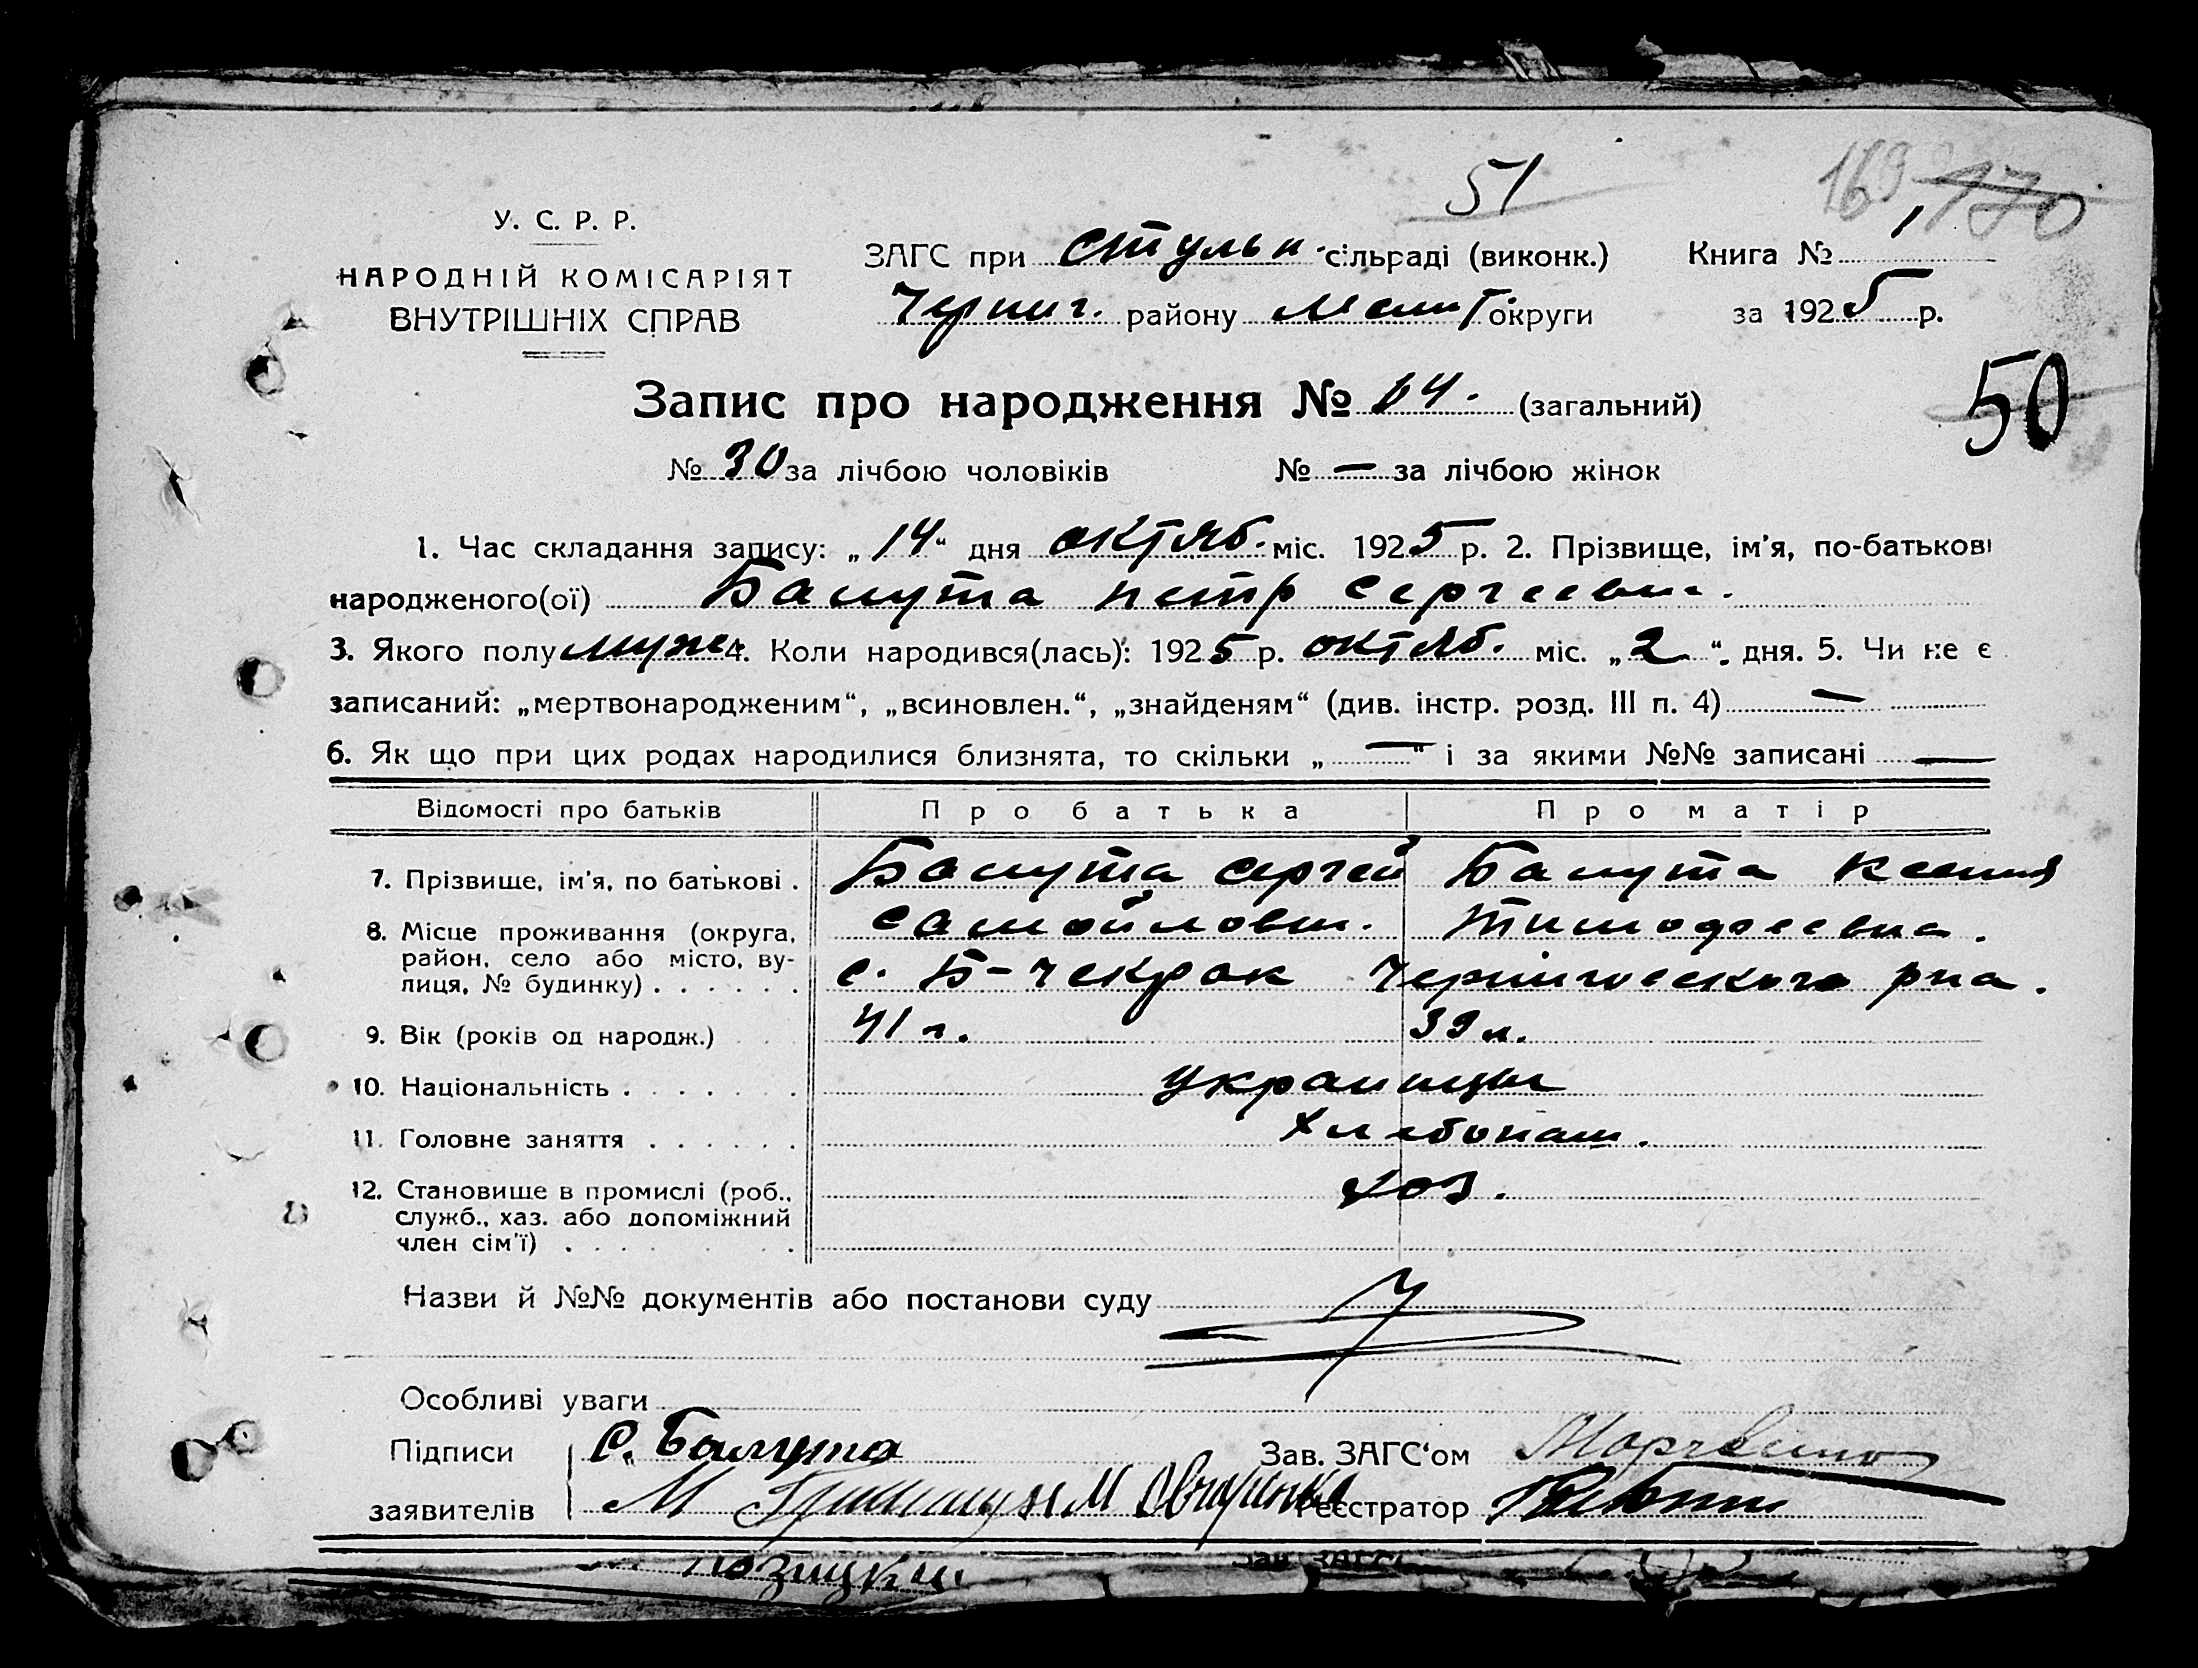 51
169 170
У. С. Р. Р.
НАРОДНІЙ КОМІСАРІЯТ
ВНУТРІШНІХ СПРАВ
ЗАГС при стульн сільраді (виконк.) Книга № 1
Черниг. району Мелит округи за 1925 р.
50
Запис про народження № 64. (загальний)
№ 30 за лічбою чоловіків № — за лічбою жінок
1. Час складання запису: „14“ дня октяб. міс. 1925 р. 2. Прізвище, ім'я, по-батькові
народженого(ої) Балута Петр Сергеевич.
3. Якого полу муж 4. Коли народився(лась): 1925 р. октяб. міс. „2“ дня. 5. Чи не є
записаний: „мертвонародженим“, „всиновлен.“, „знайденям“ (див. інстр. розд. III п. 4) —
6. Як що при цих родах народилися близнята, то скільки „—“ і за якими №№ записані —
Відомості про батьків Про батька Про матір
7. Прізвище, ім'я, по батькові . Балута Сергей Балута Ксения
8. Місце проживання (округа, Самойлович. Тимофеевна.
район, село або місто, ву-
лиця, № будинку) . . . . . . с. Б-Чекрак Черниговского р-на.
9. Вік (років од народж.) 41 г. 39 л.
10. Національність . . . . . . . украинцы
11. Головне заняття . . . . . . хлебопаш.
12. Становище в промислі (роб., хоз.
служб., хаз. або допоміжний
член сім'ї) . . . . . . .
Назви й №№ документів або постанови суду
Особливі уваги
Підписи С. Балута Зав. ЗАГС'ом
заявителів М М Овчаренко Реєстратор
Зав. ЗАГС